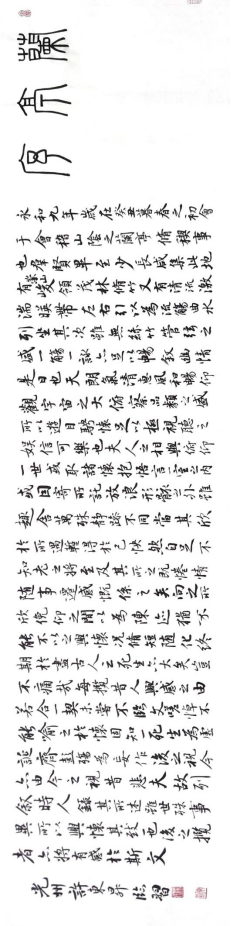 蘭亭序
永和九年歲在癸丑暮春之初會
于會稽山陰之蘭亭脩禊事
也群賢畢至少長咸集此地
有崇山峻領茂林脩竹又有清流激
湍暎帶左右引以為流觴曲水
列坐其次雖無絲竹管弦之
盛一觴一詠亦足以暢敘幽情
是日也天朗氣清惠風和暢仰
觀宇宙之大俯察品類之盛
所以遊目騁懷足以極視聽之
娛信可樂也夫人之相與俯仰
一世或取諸懷抱悟言一室之內
或因寄所託放浪形骸之外雖
趣舍萬殊靜躁不同當其欣
於所遇暫得於己快然自足不
知老之將至及其所之既惓情
隨事遷感慨係之矣向之所
欣俛仰之間以為陳迹猶不
能不以之興懷況脩短隨化終
期於盡古人云死生亦大矣豈
不痛哉每攬昔人興感之由
若合一契未嘗不臨文嗟悼不
能喻之於懷固知一死生為虛
誕齊彭殤為妄作後之視今
亦由今之視昔悲夫故列
敘時人錄其所述雖世殊事
異所以興懷其致一也後之攬
者亦將有感於斯文
光州許東昇臨習